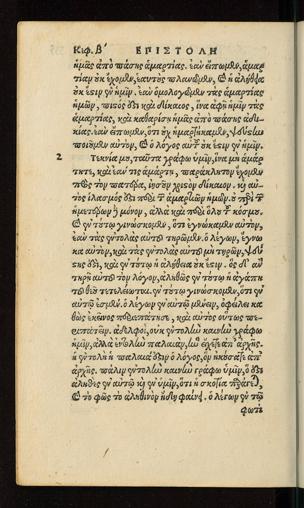 Κεφ. β΄ ΕΠΙΣΤΟΛΗ
ἡμᾶς ἀπὸ πάσης ἁμαρτίας. ἐὰν εἴπωμεν, ἁμαρ
τίαν οὐκ ἔχομεν, ἑαυτοὺς πλανῶμεν, καὶ ἡ ἀλήθεια
οὐκ ἔστιν ἐν ἡμῖν. ἐὰν ὁμολογῶμεν τὰς ἁμαρτίας
ἡμῶν, πιστός ἐστι καὶ δίκαιος, ἵνα ἀφῇ ἡμῖν τὰς
ἁμαρτίας, καὶ καθαρίσῃ ἡμᾶς ἀπὸ πάσης ἀδι-
κίας. ἐὰν εἴπωμεν, ὅτι οὐχ ἡμαρτήκαμεν, ψεύστην
ποιοῦμεν αὐτὸν, καὶ ὁ λόγος αὐτοῦ οὐκ ἔστιν ἐν ἡμῖν.
2 Τεκνία μου, ταῦτα γράφω ὑμῖν, ἵνα μὴ ἁμάρ
τητε, καὶ ἐάν τις ἁμάρτῃ, παράκλητον ἔχομεν
πρὸς τὸν πατέρα, ἰησοῦν χριστὸν δίκαιον. καὶ αὐ
τὸς ἱλασμός ἐστι περὶ τῶν ἁμαρτιῶν ἡμῶν. οὐ περὶ τῶν
ἡμετέρων δὲ μόνον, ἀλλὰ καὶ περὶ ὅλου τοῦ κόσμου.
καὶ ἐν τούτῳ γινώσκομεν, ὅτι ἐγνώκαμεν αὐτὸν,
ἐὰν τὰς ἐντολὰς αὐτοῦ τηρῶμεν. ὁ λέγων, ἔγνω
κα αὐτὸν, καὶ τὰς ἐντολὰς αὐτοῦ μὴ τηρῶν, ψεύ
στης ἐστὶ, καὶ ἐν τούτῳ ἡ ἀλήθεια οὐκ ἔστιν. ὃς δ' ἂν
τηρῇ αὐτοῦ τὸν λόγον, ἀληθῶς ἐν τούτῳ ἡ ἀγάπη
τοῦ θεοῦ τετελείωται. ἐν τούτῳ γινώσκομεν, ὅτι ἐν
αὐτῷ ἐσμέν. ὁ λέγων ἐν αὐτῷ μένειν, ὀφείλει κα
θὼς ἐκεῖνος περιεπάτησε, καὶ αὐτὸς οὕτως πε-
ριπατεῖν. ἀδελφοὶ, οὐκ ἐντολὴν καινὴν γράφω
ὑμῖν, ἀλλὰ ἐντολὴν παλαιὰν, ἣν εἴχετε ἀπ' ἀρχῆς.
ἡ ἐντολὴ ἡ παλαιά ἐστιν ὁ λόγος, ὃν ἠκούσατε ἀπ'
ἀρχῆς. πάλιν ἐντολὴν καινὴν γράφω ὑμῖν, ὅ ἐστι
ἀληθὲς ἐν αὐτῷ καὶ ἐν ὑμῖν, ὅτι ἡ σκοτία παράγεται,
καὶ τὸ φῶς τὸ ἀληθινὸν ἤδη φαίνει. ὁ λέγων ἐν τῷ
φωτὶ